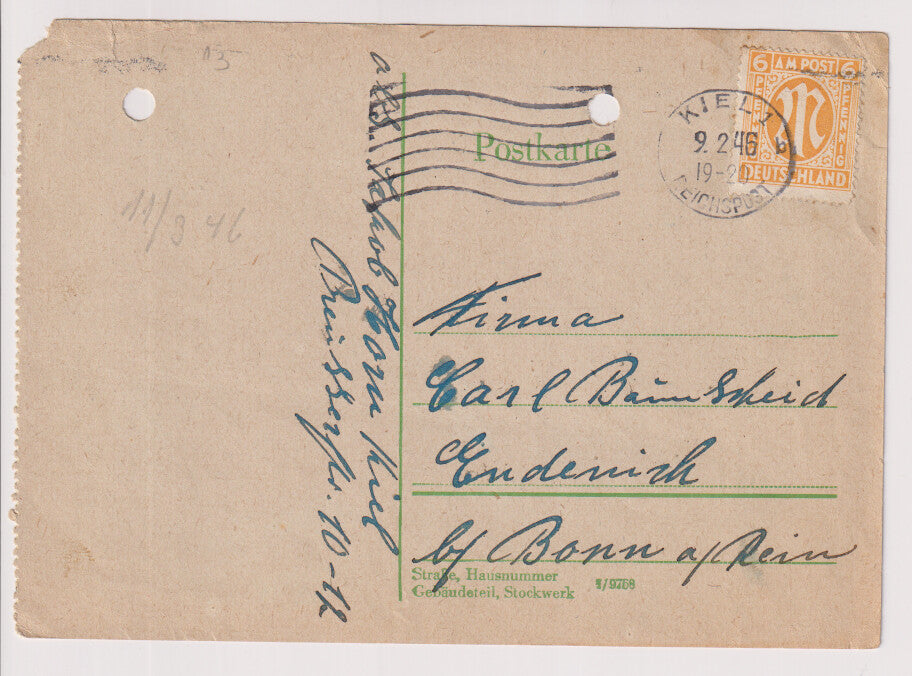 15
11/3 46
Jakob Horn Kiel
10-12
Postkarte
KIEL 1
9.2.46
19-20
b
REICHSPOST
6 AM POST 6
PFENNIG PFENNIG
DEUTSCHLAND
Firma
Carl Baunscheid
Endenich
b/ Bonn a/Rein
Straße, Hausnummer
Gebäudeteil, Stockwerk